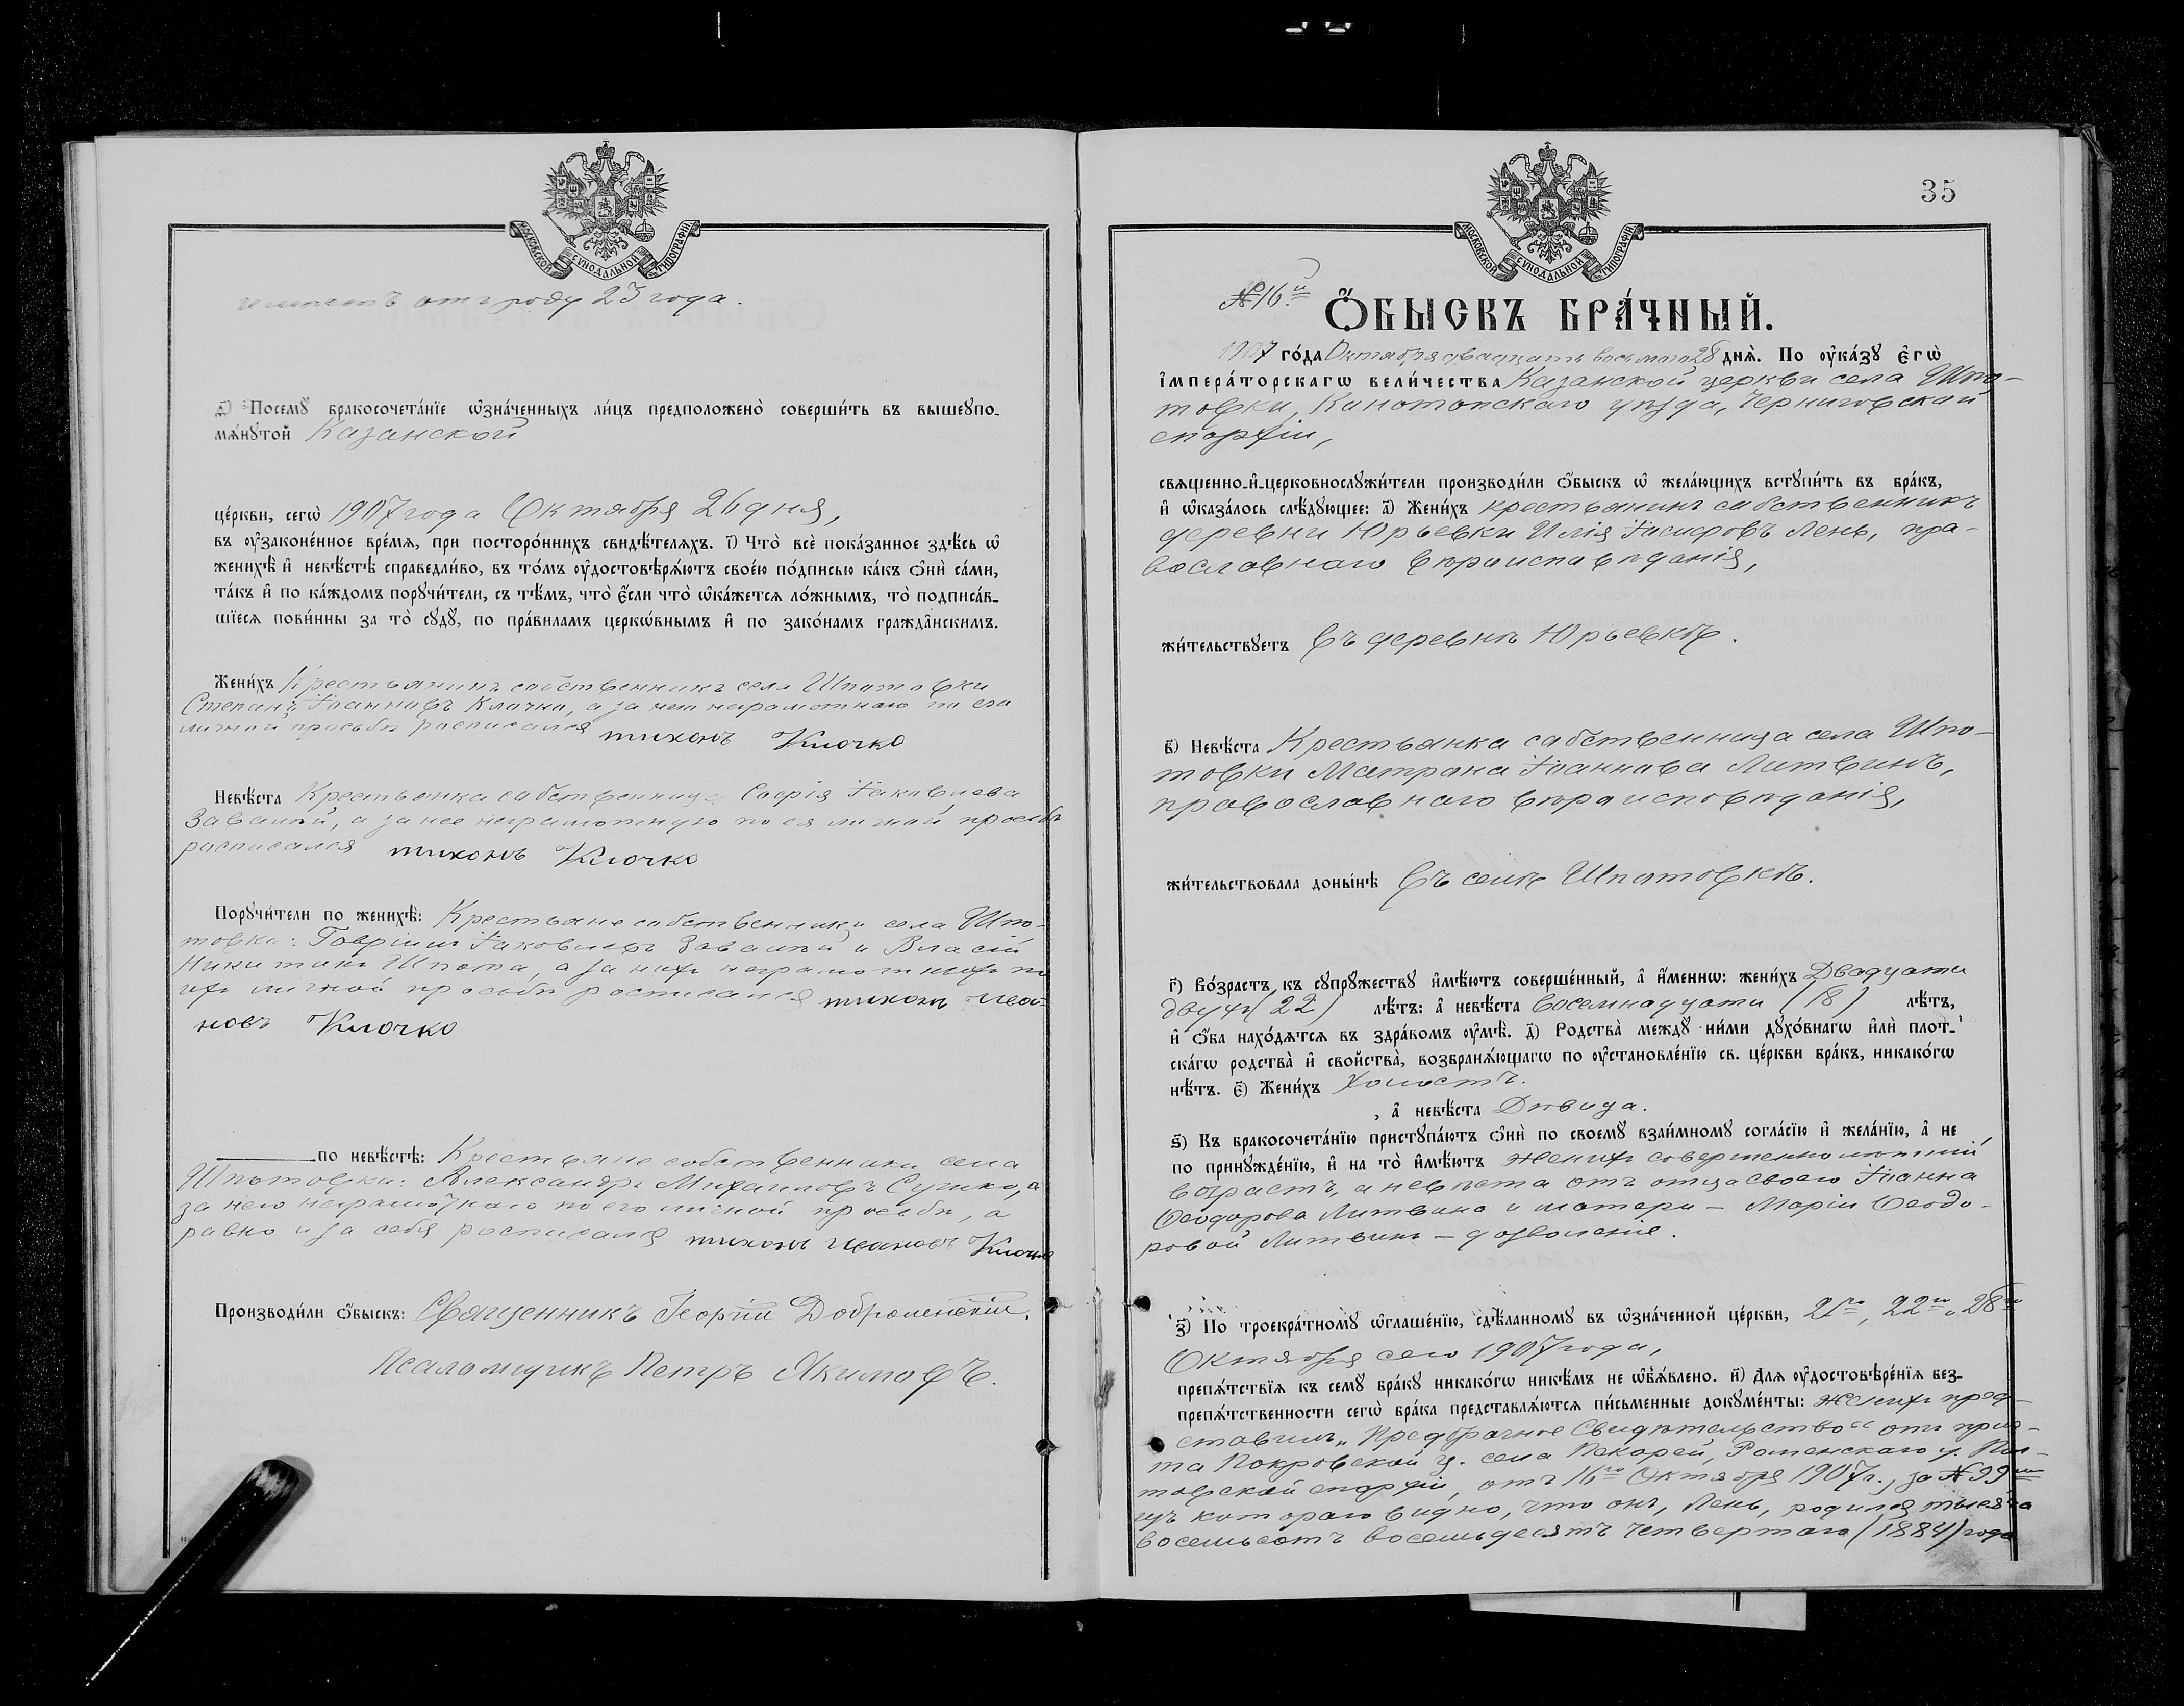 МОСКОВСКОЙ СѴНОДАЛЬНОЙ ТИПОГРАФІИ
имѣетъ отъ роду 23 года.
Посемꙋ̀ бракосочета́нїе ѡ҆зна́ченныхъ ли́цъ предположено̀ соверши́ть въ вышеꙋпо-
мѧ́нꙋтой Казанской
це́ркви, сегѡ̀ 1907 года Октября 26 дня,
въ ᲂу҆законе́нное вре́мѧ, при посторо́ннихъ свидѣ́телѧхъ. і҃) Что̀ всѐ пока́занное здѣ́сь ѡ҆
женихѣ̀ и҆ невѣ́стѣ справедли́во, въ то́мъ ᲂу҆достовѣрѧ́ютъ свое́ю по́дписью ка́къ ѻ҆нѝ са́ми,
та́къ и҆ по ка́ждомъ порꙋчи́тели, съ тѣ́мъ, что̀ є҆́сли что̀ ѡ҆ка́жетсѧ ло́жнымъ, то̀ подписа́в-
шїесѧ пови́нны за то̀ сꙋдꙋ̀, по пра́виламъ церкѡ́внымъ и҆ по зако́намъ гражда̑нскимъ.
Жени́хъ Крестьянинъ собственникъ села Шпотовки
Степанъ Іоанновъ Клочко, а за него неграмотнаго по его
личной просьбѣ росписался тихонъ Клочко
Невѣ́ста Крестьянка собственница Софія Іаковлева
Завалій, а за нее неграмотную по ея личной просьбѣ
росписался тихонъ Клочко
Порꙋчи́тели по женихѣ̀: Крестьяне собственники села Шпо-
товки: Гавріилъ Іаковлевъ Завалій и Власій
Никитинъ Шпота, а за нихъ неграмотныхъ по
ихъ личной просьбѣ росписался тихонъ Ива-
новъ Клочко
по невѣ́стѣ: Крестьяне собственники села
Шпотовки: Александръ Михаиловъ Сушко, а
за него неграмотнаго по его личной просьбѣ, а
равно и за себя росписался тихонъ Ивановъ Клочко
Производи́ли ѻ҆́быскъ: Священникъ Георгій
Псаломщикъ Петръ Якимовъ.
35
МОСКОВСКОЙ СѴНОДАЛЬНОЙ ТИПОГРАФІИ
№ 16й
Ѻ҆́БЫСКЪ БРА́ЧНЫЙ.
1907 го́да Октября двадцать восьмого 28 днѧ̀. По ᲂу҆ка́зꙋ є҆гѡ̀
і҆мпера́торскагѡ вели́чества Казанской церкви села Шпо-
товки, Конотопскаго уѣзда, Черниговской
епархіи,
свѧщенно-и҆-церковнослꙋжи́тели производи́ли ѻ҆́быскъ ѡ҆ жела́ющихъ встꙋпи́ть въ бра́къ,
и҆ ѡ҆каза́лось слѣ́дꙋющее: а҃) Жени́хъ крестьянинъ собственникъ
деревни Юрьевки Илія Іосифовъ Лень, пра-
вославнаго вѣроисповѣданія,
жи́тельствꙋетъ въ деревнѣ Юрьевкѣ.
в҃) Невѣ́ста Крестьянка собственница села Шпо-
товки Матрона Іоаннова Литвинъ,
православнаго вѣроисповѣданія,
жи́тельствовала доны́нѣ въ селѣ Шпотовкѣ.
г҃) Во́зрастъ къ сꙋпрꙋ́жествꙋ и҆мѣ́ютъ соверше́нный, а҆ и҆́меннѡ: жени́хъ Двадцати
двухъ (22) лѣ́тъ: а҆ невѣ́ста восемнадцати (18) лѣ́тъ,
и҆ ѻ҆́ба нахо́дѧтсѧ въ здра́вомъ ᲂу҆мѣ̀. д҃) Родства̀ междꙋ̀ ни́ми дꙋхо́внагѡ и҆лѝ плот-
ска́гѡ родства̀ и҆ свойства̀, возбранѧ́ющагѡ по ᲂу҆становле́нїю св. це́ркви бра́къ, никако́гѡ
нѣ́тъ. є҃) Жени́хъ холостъ.
, а҆ невѣ́ста Дѣвица.
ѕ҃) Къ бракосочета́нїю пристꙋпа́ютъ ѻ҆нѝ по своемꙋ̀ взаи́мномꙋ согла́сїю и҆ жела́нїю, а҆ не
по принꙋжде́нїю, и҆ на то̀ и҆мѣ́ютъ женихъ совершеннолѣтній
возрастъ, а невѣста отъ отца своего Іоанна
Ѳеодорова Литвина и матери – Маріи Ѳеодо-
ровой Литвинъ – дозволеніе.
з҃) По троекра́тномꙋ ѡ҆глаше́нїю, сдѣ́ланномꙋ въ ѡ҆зна́ченной це́ркви, 21го, 22го, 28го
Октября сего 1907 года,
препѧ́тствїѧ къ семꙋ̀ бра́кꙋ никако́гѡ никѣ́мъ не ѡ҆б̾ѧ́влено. и҃) Длѧ ᲂу҆достовѣре́нїѧ без-
препѧ́тственности сегѡ̀ бра́ка представлѧ́ютсѧ пи́сьменные докꙋме́нты: Женихъ пред-
ставилъ „Предбрачное Свидѣтельство“ отъ при-
та Покровской ц. села Пекарей, Роменскаго у. Пол-
тавской епархіи, отъ 16го Октября 1907 г., за № 99
изъ котораго видно, что онъ, Лень, родился тысяча
восемьсотъ восемьдесятъ четвертаго (1884) года